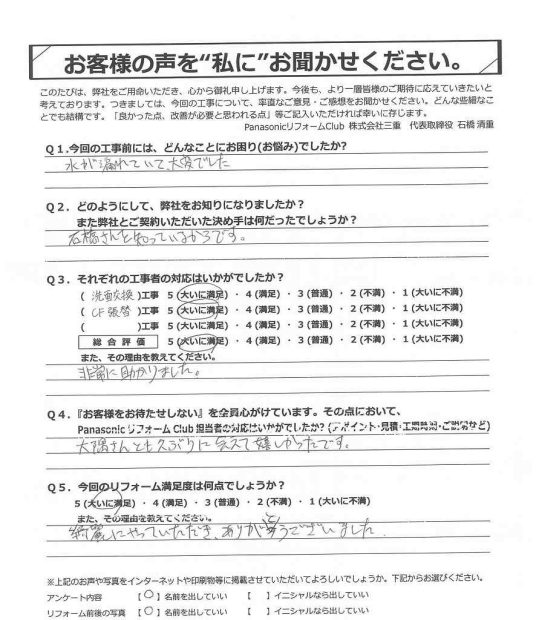 お客様の声を“私に”お聞かせください。
このたびは、弊社をご用命いただき、心から御礼申し上げます。今後も、より一層皆様のご期待に応えていきたいと
考えております。つきましては、今回の工事について、率直なご意見・ご感想をお聞かせください。どんな些細なこ
とでも結構です。「良かった点、改善が必要と思われる点」等ご記入いただければ幸いに存じます。
PanasonicリフォームClub 株式会社三重 代表取締役 石橋 清重
Q1.今回の工事前には、どんなことにお困り(お悩み)でしたか?
水が漏れていて、大変でした
Q2. どのようにして、弊社をお知りになりましたか?
また弊社とご契約いただいた決め手は何だったでしょうか?
石橋さんを知っているからです。
Q3. それぞれの工事者の対応はいかがでしたか?
( 洗面交換 )工事 5 (大いに満足) ・ 4 (満足) ・ 3 (普通) ・ 2 (不満) ・ 1 (大いに不満)
( CF張替 )工事 5 (大いに満足) ・ 4 (満足) ・ 3 (普通) ・ 2 (不満) ・ 1 (大いに不満)
( )工事 5 (大いに満足) ・ 4 (満足) ・ 3 (普通) ・ 2 (不満) ・ 1 (大いに不満)
総合評価 5 (大いに満足) ・ 4 (満足) ・ 3 (普通) ・ 2 (不満) ・ 1 (大いに不満)
また、その理由を教えてください。
非常に助かりました。
Q4.『お客様をお待たせしない』を全員心がけています。その点において、
Panasonic リフォーム Club 担当者の対応はいかがでしたか? (アポイント・見積・工期時間・ご説明など)
大隅さんとも久ぶりに会えて嬉しかったです。
Q5. 今回のリフォーム満足度は何点でしょうか?
5 (大いに満足) ・ 4 (満足) ・ 3 (普通) ・ 2 (不満) ・ 1 (大いに不満)
また、その理由を教えてください。
綺麗にやっていただき、ありがとうございました
※上記のお声や写真をインターネットや印刷物等に掲載させていただいてよろしいでしょうか。下記からお選びください。
アンケート内容 【○】名前を出していい 【 】イニシャルなら出していい
リフォーム前後の写真 【○】名前を出していい 【 】イニシャルなら出していい